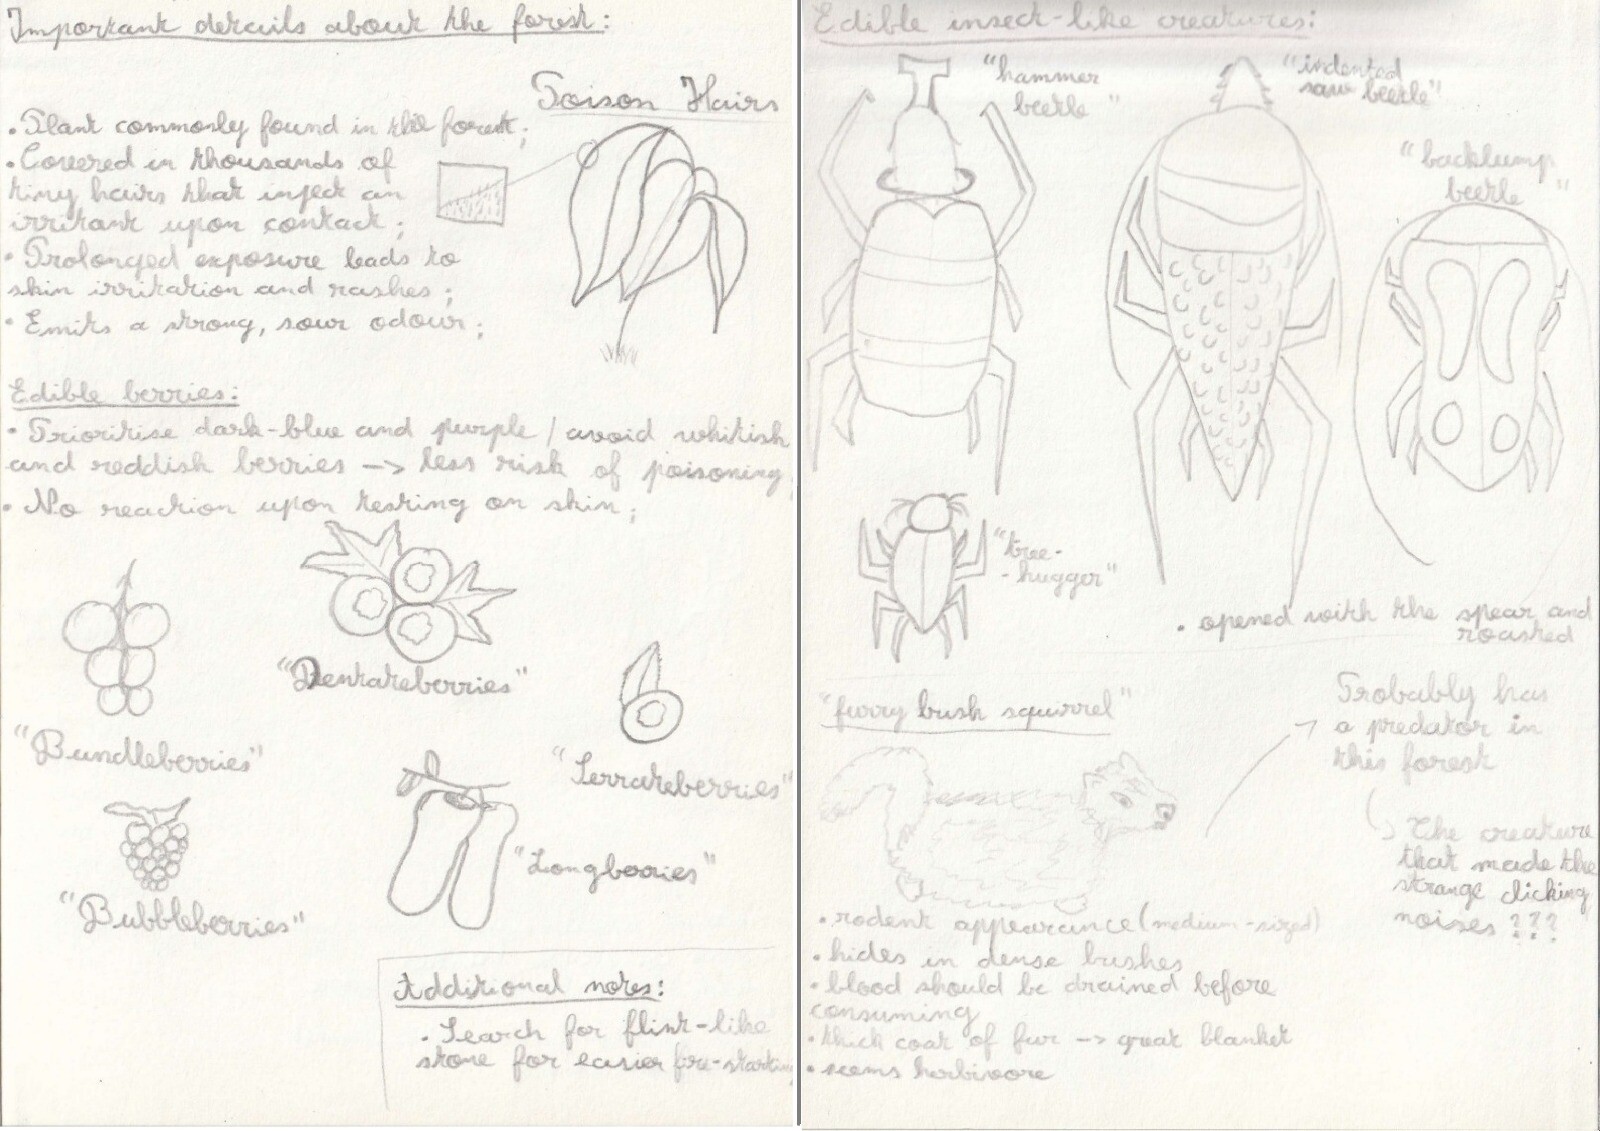 Important details about the forest:
Poison Hairs
• Plant commonly found in the forest;
• Covered in thousands of
tiny hairs that inject an
irritant upon contact;
• Prolonged exposure leads to
skin irritation and rashes;
• Emits a strong, sour odour;
Edible berries:
• Prioritise dark-blue and purple / avoid whitish
and reddish berries --> less risk of poisoning;
• No reaction upon testing on skin;
"Dentateberries"
"Bundleberries"
"Serrateberries"
"Longberries"
"Bubbleberries"
Additional notes:
• Search for flint-like
stone for easier fire-starting
Edible insect-like creatures:
"hammer
beetle"
"indented
saw beetle"
"backlump
beetle"
"tree-
-hugger"
• opened with the spear and
roasted
"furry bush squirrel"
Probably has
a predator in
this forest
The creature
that made the
strange clicking
noises ???
• rodent appearance (medium-sized)
• hides in dense bushes
• blood should be drained before
consuming
• thick coat of fur --> great blanket
• seems herbivore